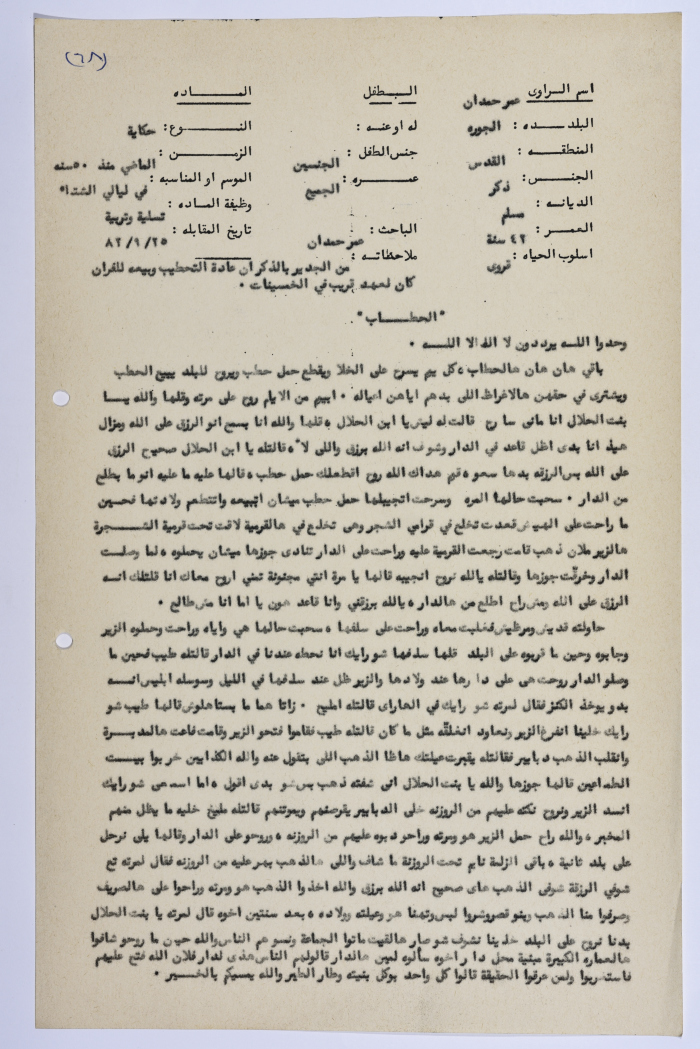 (٦٨)
اسم الراوى : عمر حمدان
البطفل
الماده
البلده : الجوره
له او عنه :
النوع : حكاية
المنطقه : القدس
جنس الطفل : الجنسين
الزمن : الماضي منذ ٥٠ سنه
الجنس : ذكر
عمره : الجميع
الموسم او المناسبه : في ليالي الشتاء
الديانه : مسلم
وظيفة الماده : تسلية وتربية
العمر : ٤٢ سنة
الباحث : عمر حمدان
تاريخ المقابله : ٨٢/٩/٢٥
اسلوب الحياه : قروى
ملاحظاته : من الجدير بالذكر ان عادة التحطيب وبيعه للفران
كان لعهد قريب في الخمسينات ٠
"الحطاب"
وحدوا الله يرددون لا اله الا الله ٠
باقي هان هان هالحطاب ، كل يم يسرح على الخلا ويقطع حمل حطب ويروح للبلد يبيع الحطب
ويشترى في حقهن هالاغراظ اللى بدهم اياهن اعياله ٠ ابيم من الايام روح على مرته وقلها والله يا
بنت الحلال انا مانى سارح قالت له ليش يا ابن الحلال ، قلها والله انا بسمع انو الرزق على الله ومزال
هيذ انا بدى اظل قاعد في الدار وشوف انه الله برزق واللى لا ، قالتله يا ابن الحلال صحيح الرزق
على الله بس الرزقه بدها سعو ، قيم هداك الله روح اقطعلك حمل حطب ، قالها عليه ما عليه انو ما بطلع
من الدار ٠ سحبت حالها المره وسرحت اتجيبلها حمل حطب ميشان اتبيعه واتتطعم ولادتها فحسين
ما راحت على الهيش قعدت تخلع في قرامي الشجر وهى تخلع في هالقرمية لاقت تحت قرمية الشجرة
هالزير ملان ذهب قامت رجعت القرمية عليه وراحت على الدار تنادى جوزها ميشان يحملوه ، لما وصلت
الدار وخرفت جوزها وقالتله يالله نروح انجيبه قالها يا مرة انتي مجنونة تمني اروح معاك انا قلتلك انه
الرزق على الله ومش راح اطلع من هالدار ، يالله برزقني وانا قاعد هون يا اما انا مش طالع ٠
حاولته قد بيش ومرظيش فغلبت معاه وراحت على سلفها ، سحبت حالها هي واياه وراحت وحملوه الزير
وجابوه وحين ما قربوه على البلد قلها سلفها شو رايك انا نحطه عندنا في الدار قالتله طيب فحين ما
وصلو الدار روحت هى على دارها عند ولادها والزير ظل عند سلفها في الليل وسوسله ابليس انه
بدو يوخذ الكنز فقال لمرته شو رايك في الهاراى قالتله امليح ٠ زاتا هما ما بستاهلوش قالها طيب شو
رايك خلينا انفرغ الزير ونعاود انغلقه مثل ما كان قالتله طيب فقاموا فتحو الزير وقامت فاعت هالمدبرة
وانقلب الذهب دبابير فقالتله يقبرت عيلتك هاظا الذهب اللى بتقول عنه والله الكذابين خربوا بيت
الطماعين قالها جوزها والله يا بنت الحلال اني شفته ذهب بس شو بدى اقول ، اما اسمعى شو رايك
انسد الزير ونروح نكته عليهم من الروزنه خلى الدبابير يقرصنهم ويموتنهم قالتله مليح خليه ما يظل منهم
المخبر ، والله راح حمل الزير هو ومرته وراحو دبوه عليهم من الروزنه ، وروحو على الدار وقالها يلى نرحل
على بلد ثانية ، باقى الزلمة نايم تحت الروزنة ما شاف واللى هالذهب بهر عليه من الروزنه فقال لمرته تع
شوفي الرزقة شوفى الذهب هاى صحيح انه الله برزق والله اخذوا الذهب هو ومرته وراحوا على هالصريف
وصرفوا منا الذهب وبنو قصر وشروا لبس وتهنا هو وعيلته وولاده ، بعد سنتين اخوه قال لمرته يا بنت الحلال
بدنا نروح على البلد خلينا نشرف شو صار هالقيت ماتوا الجماعة ونسوهم الناس والله حين ما روحو شافوا
هالعماره الكبيرة مبنية محل دار اخوه سألوه لمين هالدار قالولهم الناس هذى لدار فلان الله فتح عليهم
فاستغربوا ولمن عرفوا الحقيقة قالوا كل واحد بوكل بنيته وطار الطير والله يمسيكم بالخسير ٠